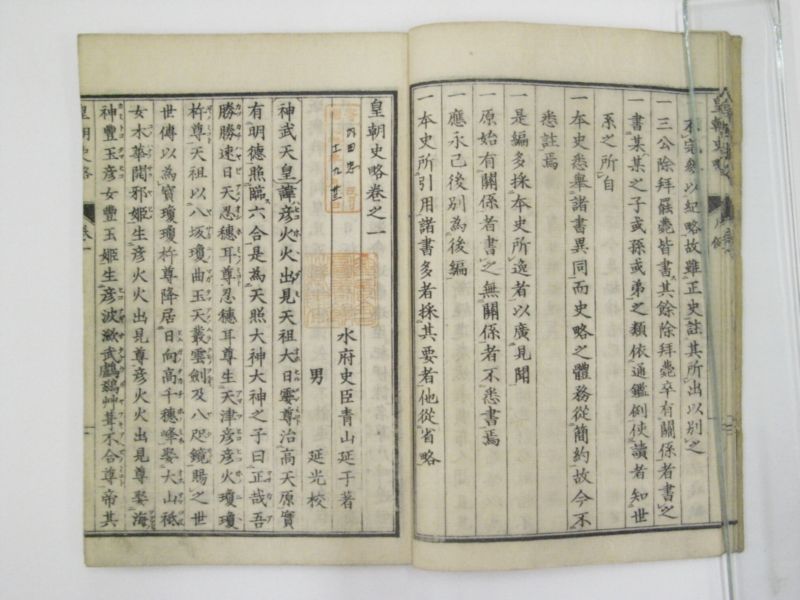 不完參以紀略故雖正史註其所出以別之
一三公除拜罷薨皆書其餘除拜薨卒有關係者書之
一書某某之子或孫或弟之類依通鑑例使讀者知世
系之所自
一本史悉擧諸書異同而史略之體務從簡約故今不
悉註焉
一是編多採本史所逸者以廣見聞
一原始有關係者書之無關係者不悉書焉
一應永己後別為後編
一本史所引用諸書多者採其要者他從省略
皇朝史略卷之一
水府史臣青山延于著
男 延光校
神武天皇諱彦火火出見天祖大日孁尊治高天原實
有明德照臨六合是為天照大神大神之子曰正哉吾
勝勝速日天忍穗耳尊忍穗耳尊生天津彦彦火瓊瓊
杵尊天祖以八坂瓊曲玉天叢雲劍及八咫鏡賜之世
世傳以為寶瓊瓊杵尊降居日向高千穗峰娶大山祇
女木華開耶姬生彦火火出見尊彦火火出見尊娶海
神豐玉彦女豐玉姬生彦波瀲武鸕鷀艸葺不合尊帝其
皇朝史略 卷一